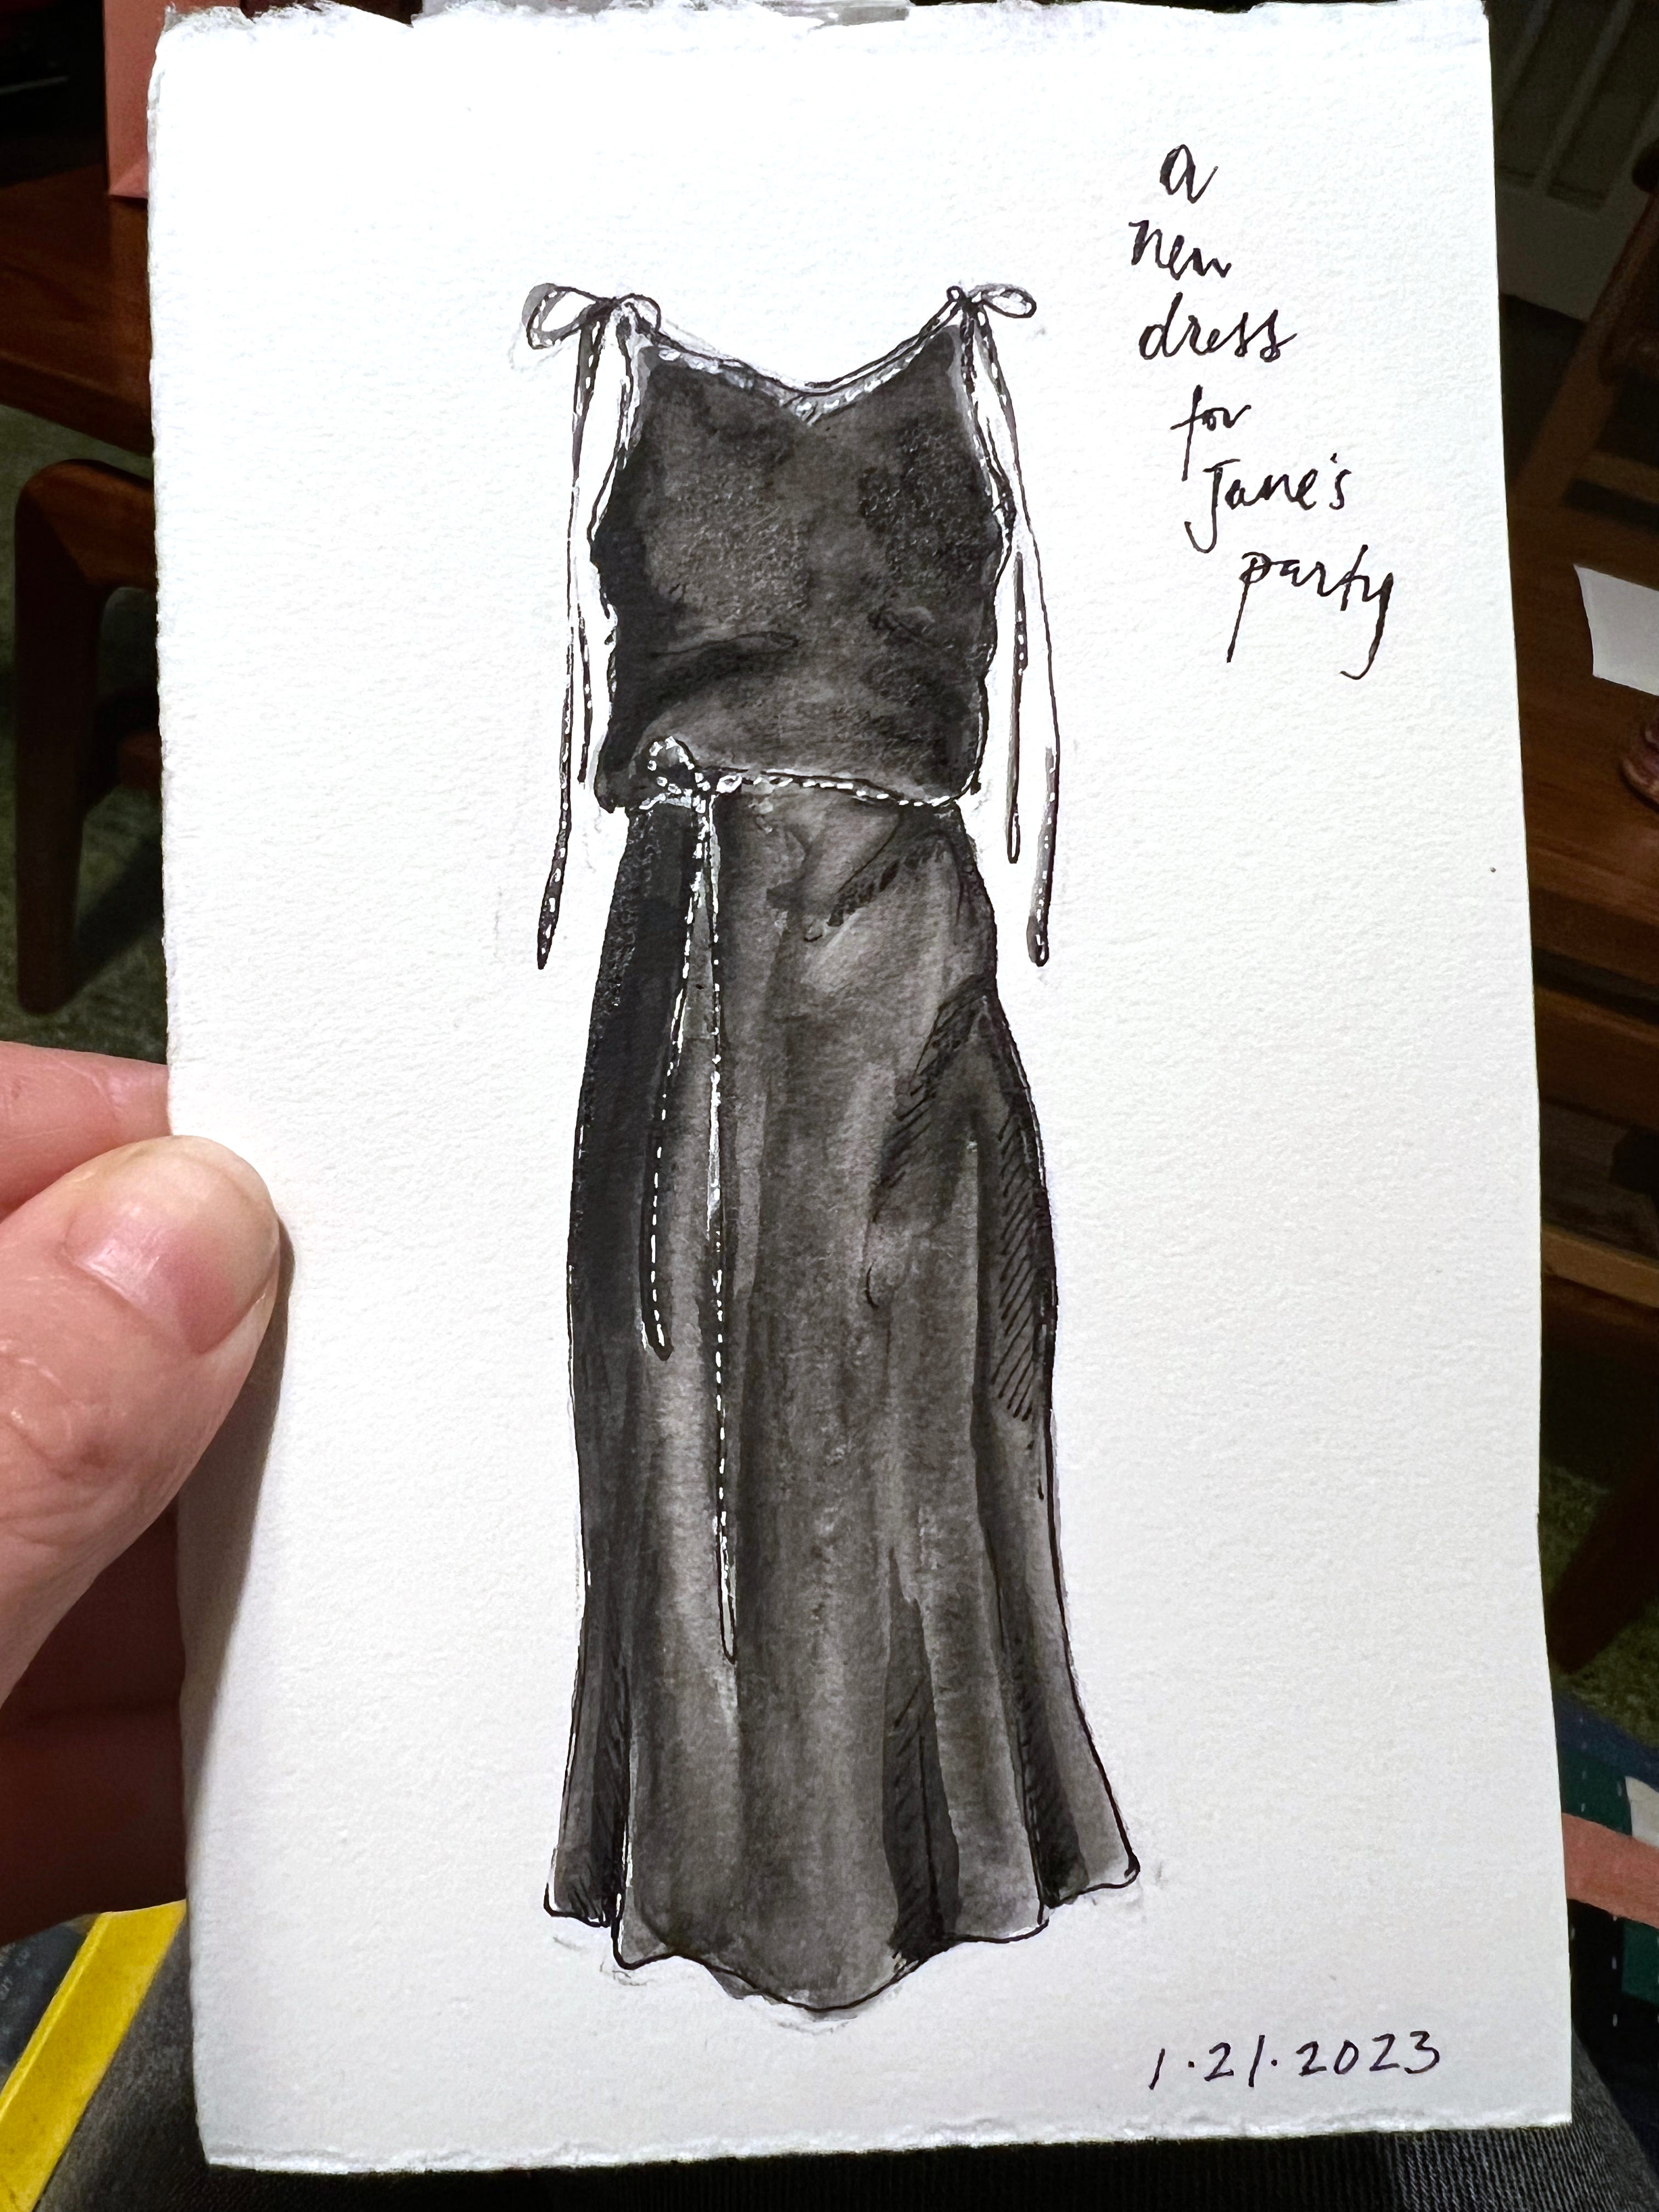 a
new
dress
for
Jane's
party
1.21.2023